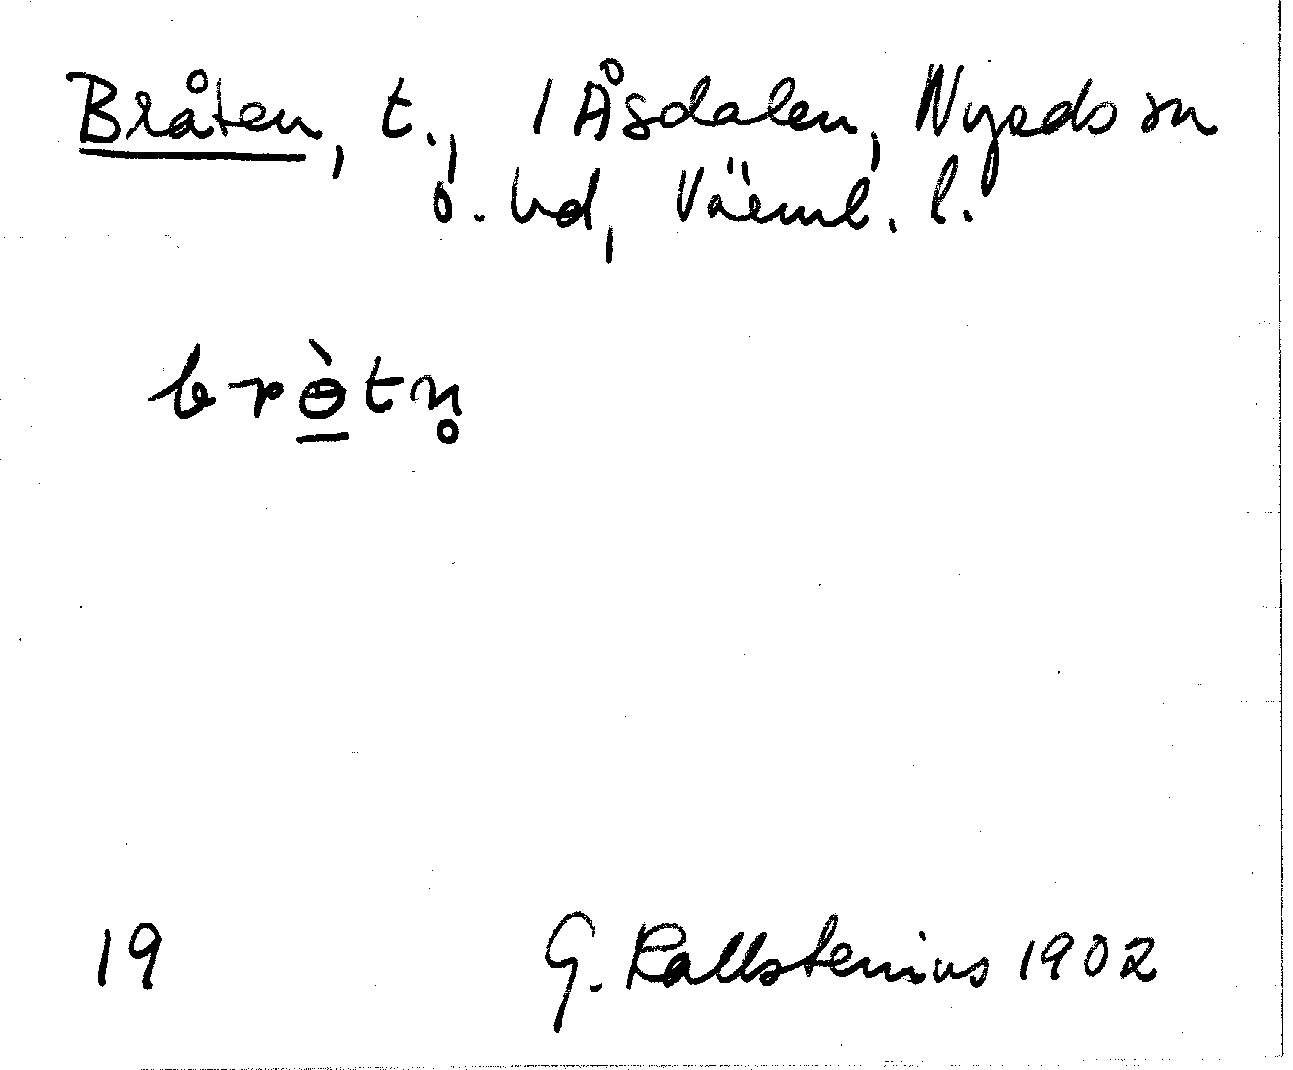 Bråten, t., 1 Åsdalen, Nyeds sn
o. hd, Värml. l.
brɵ̱̀tn̥
19 G. Kallstenius 1902